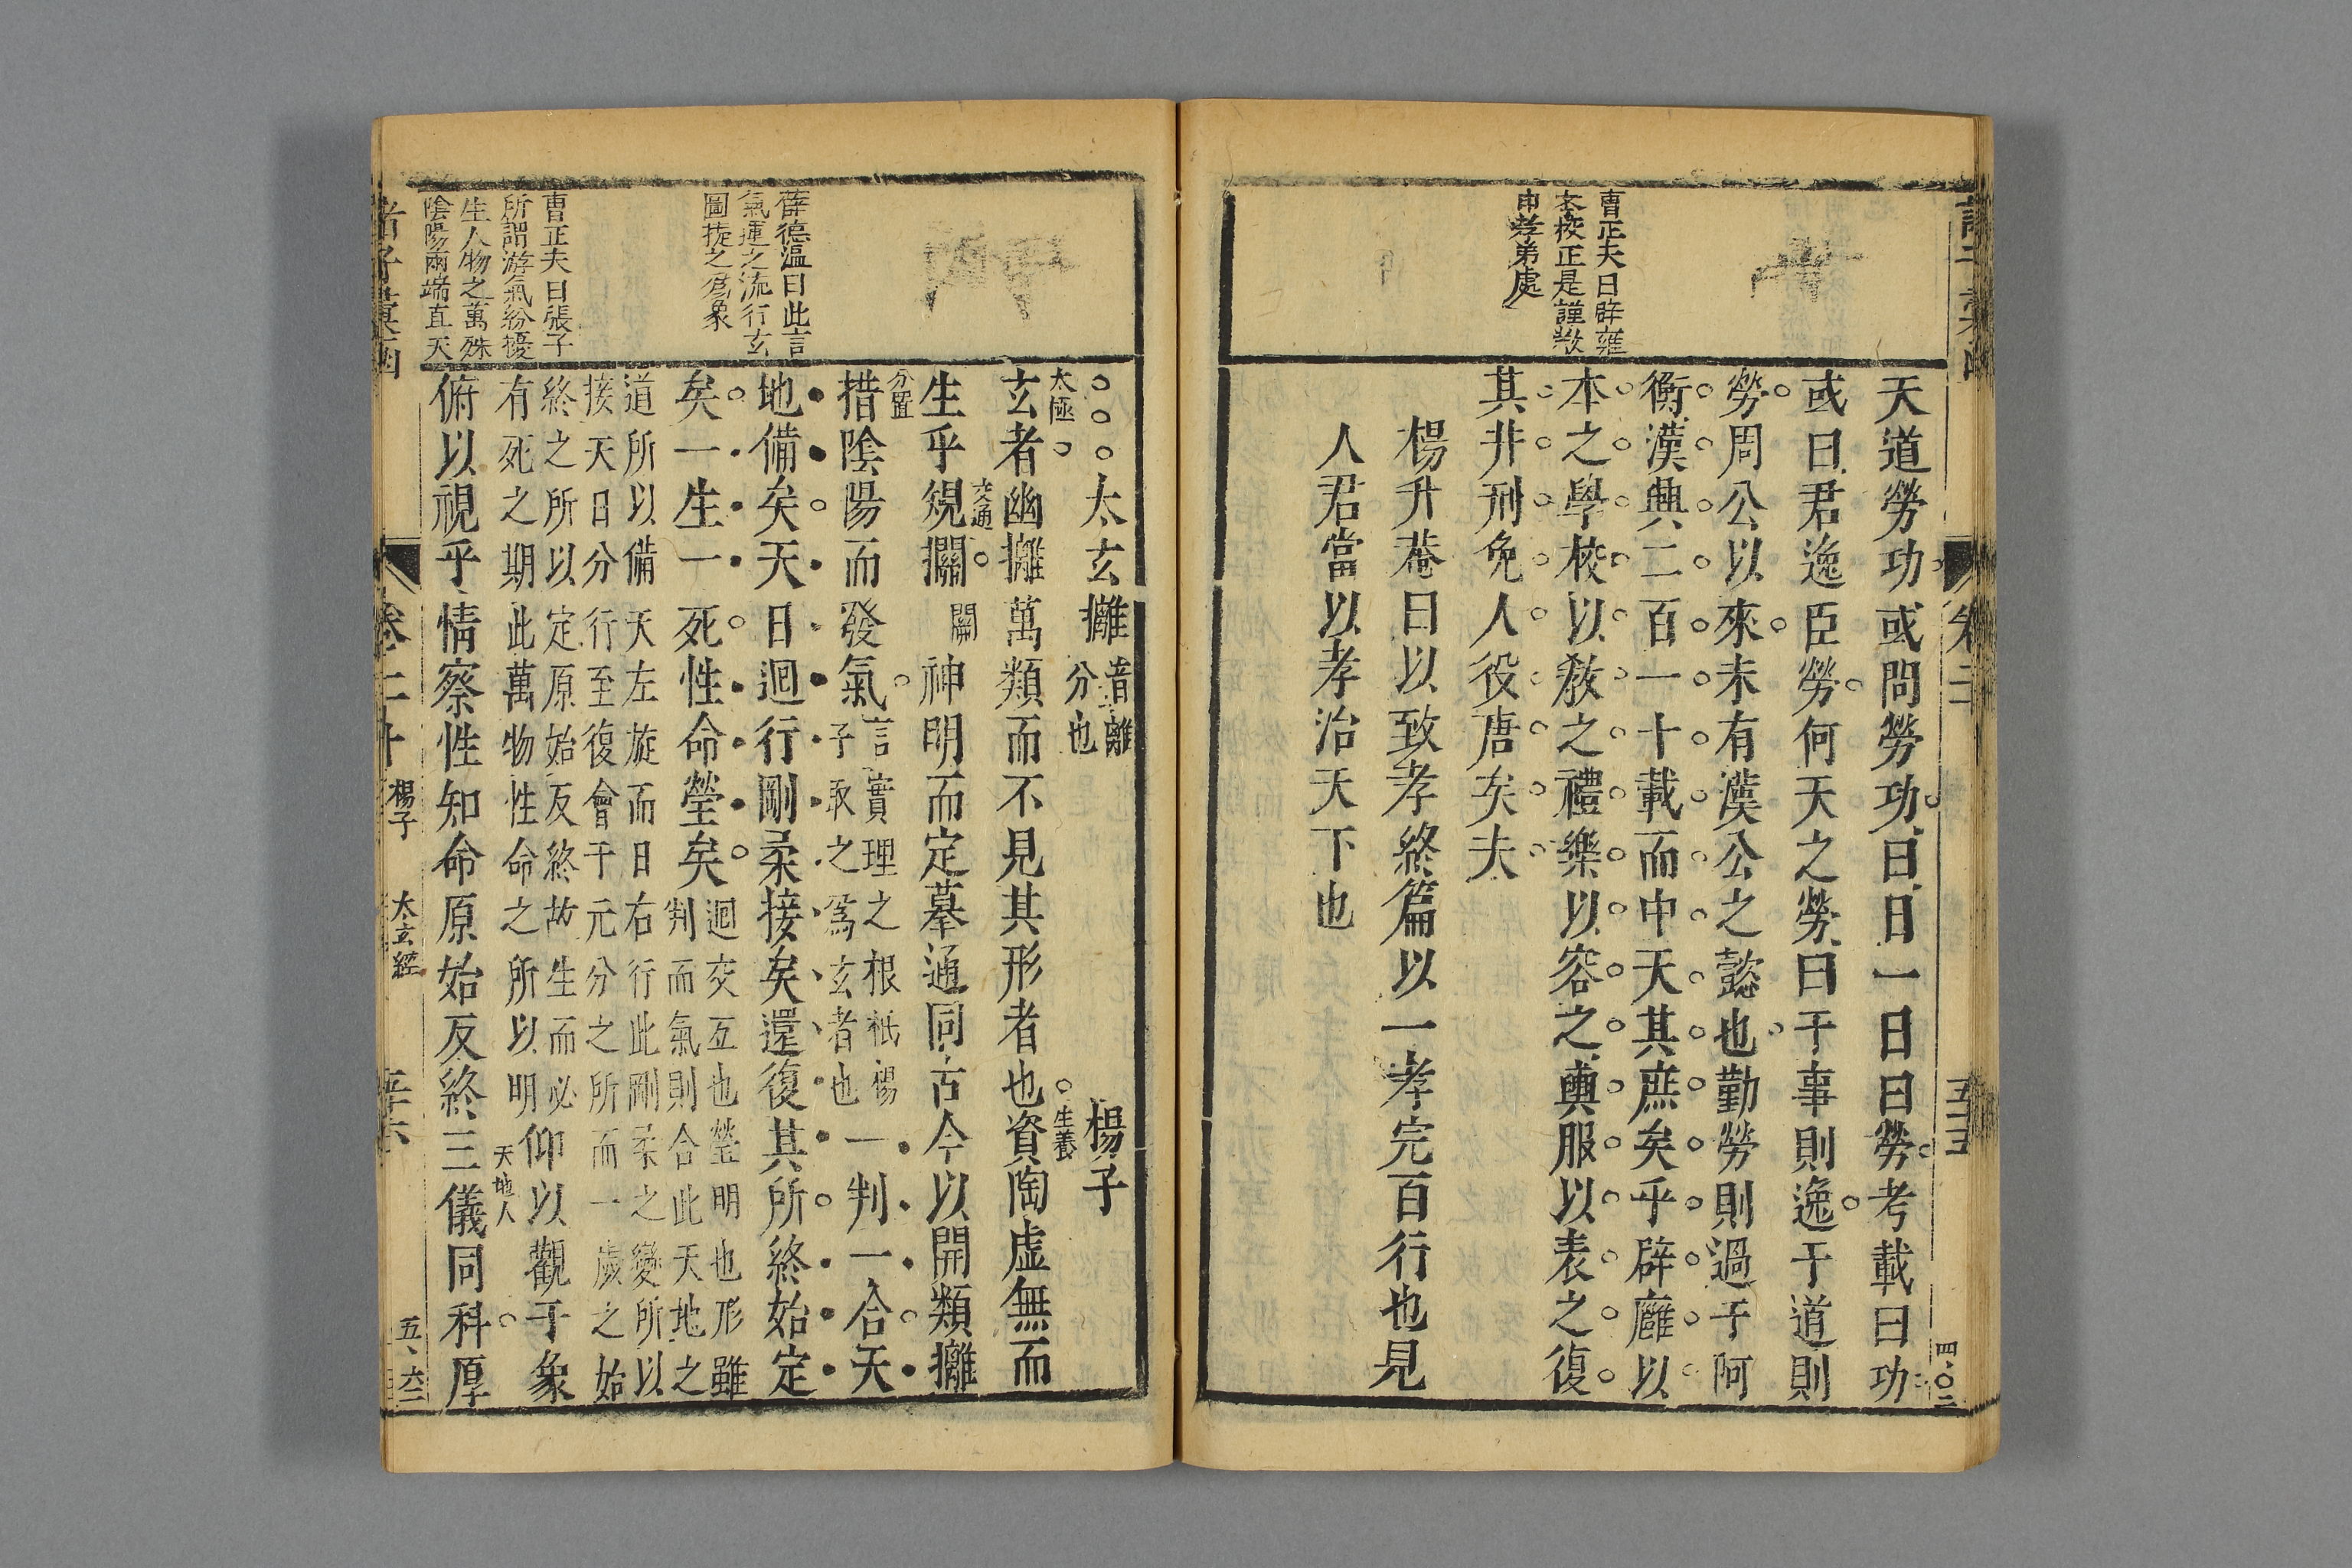 曹正夫曰辟雍
本校正是謹教
申孝弟處
天道勞功或問勞功曰日一日曰勞考載曰功
或曰君逸臣勞何天之勞曰于事則逸于道則
勞周公以來未有漢公之懿也勤勞則過于阿
衡漢興二百一十載而中天其庶矣乎辟廱以
本之學校以教之禮樂以容之輿服以表之復
其井刑免人役唐矣夫
楊升菴曰以致孝終篇以一孝完百行也見
人君當以孝治天下也
卷二
四〇二
薛德溫曰此言
氣運之流行玄
圖擬之爲象
曹正夫曰張子
所謂游氣紛擾
生人物之萬殊
陰陽兩端直天
太玄攡 音離
分也 楊子
太極
玄者幽攡萬類而不見其形者也資陶虛無而
生養
生乎規攔 關 神明而定摹通同古今以開類攡
分置
措陰陽而發氣 言實理之根祇楊
子取之爲玄者也 一判一合天
地備矣天日迴行剛柔接矣還復其所終始定
矣一生一死性命瑩矣 迴交互也瑩明也形雖
判而氣則合此天地之
道所以備天左旋而日右行此剛柔之變所以
接天日分行至復會于元分之所而一歲之始
終之所以定原始反終故生而必
有死之期此萬物性命之所以明 仰以觀乎象
俯以視乎情察性知命原始反終三儀同科厚
天地人
卷二十 楊子 太玄經
五、六二